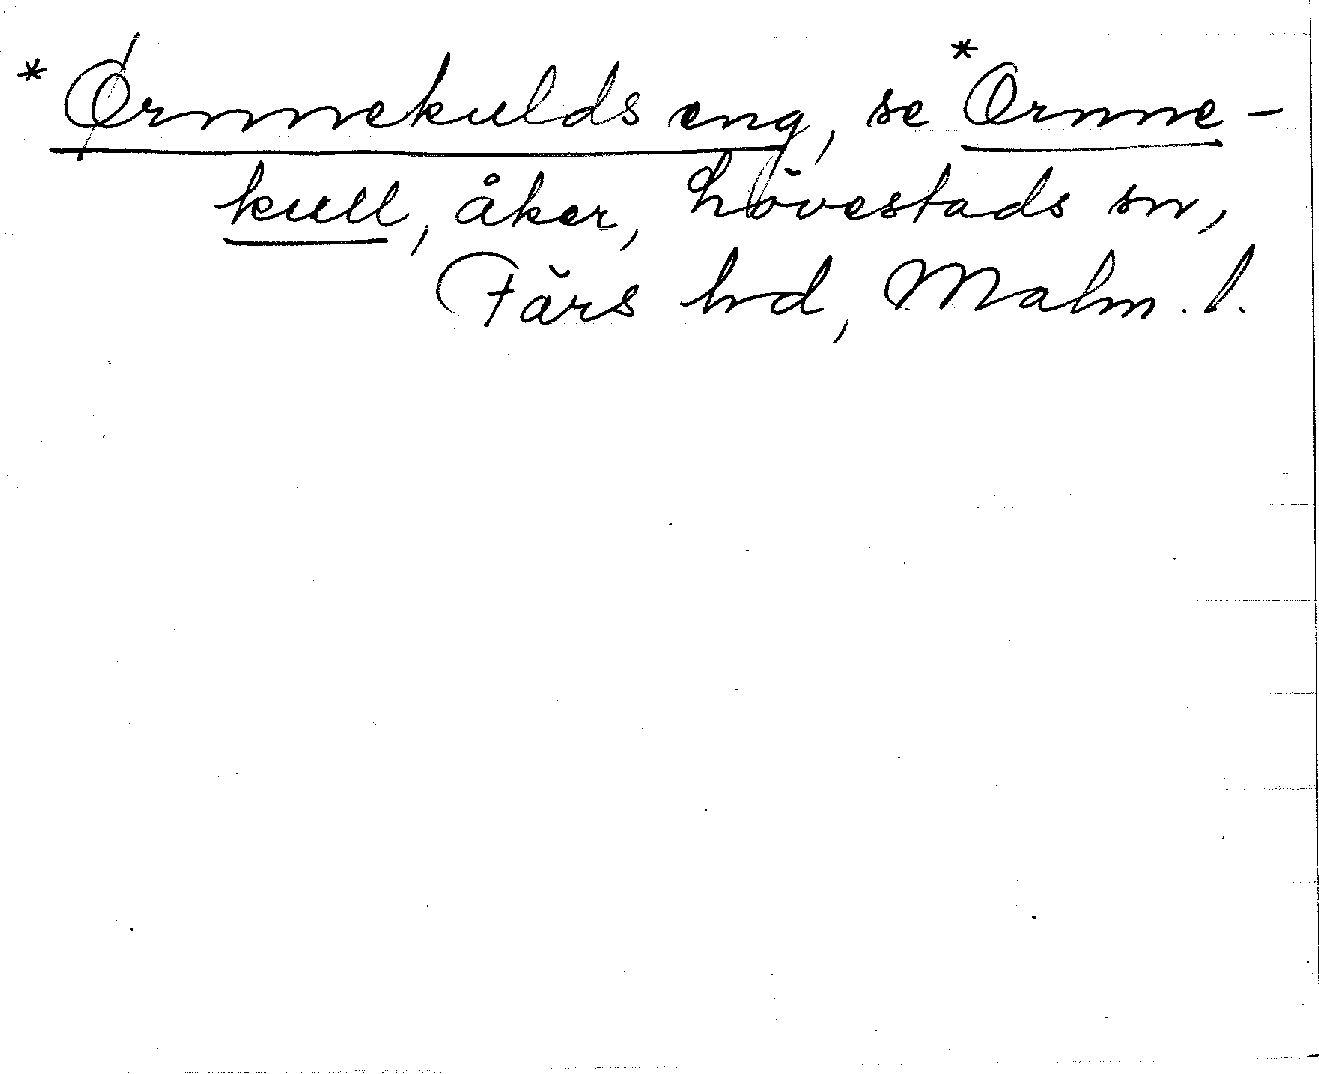 *Ørnnekulds eng, se *Ornne-
kull, åker, Lövestads sn,
Färs hd, Malm. l.